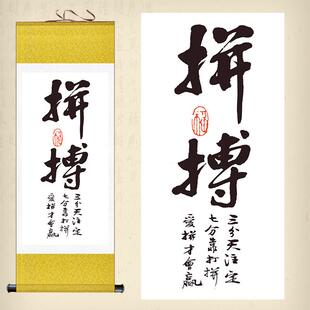 拼搏
三分天注定
七分靠打拼
爱拼才會赢
拼搏
三分天注定
七分靠打拼
爱拼才會赢